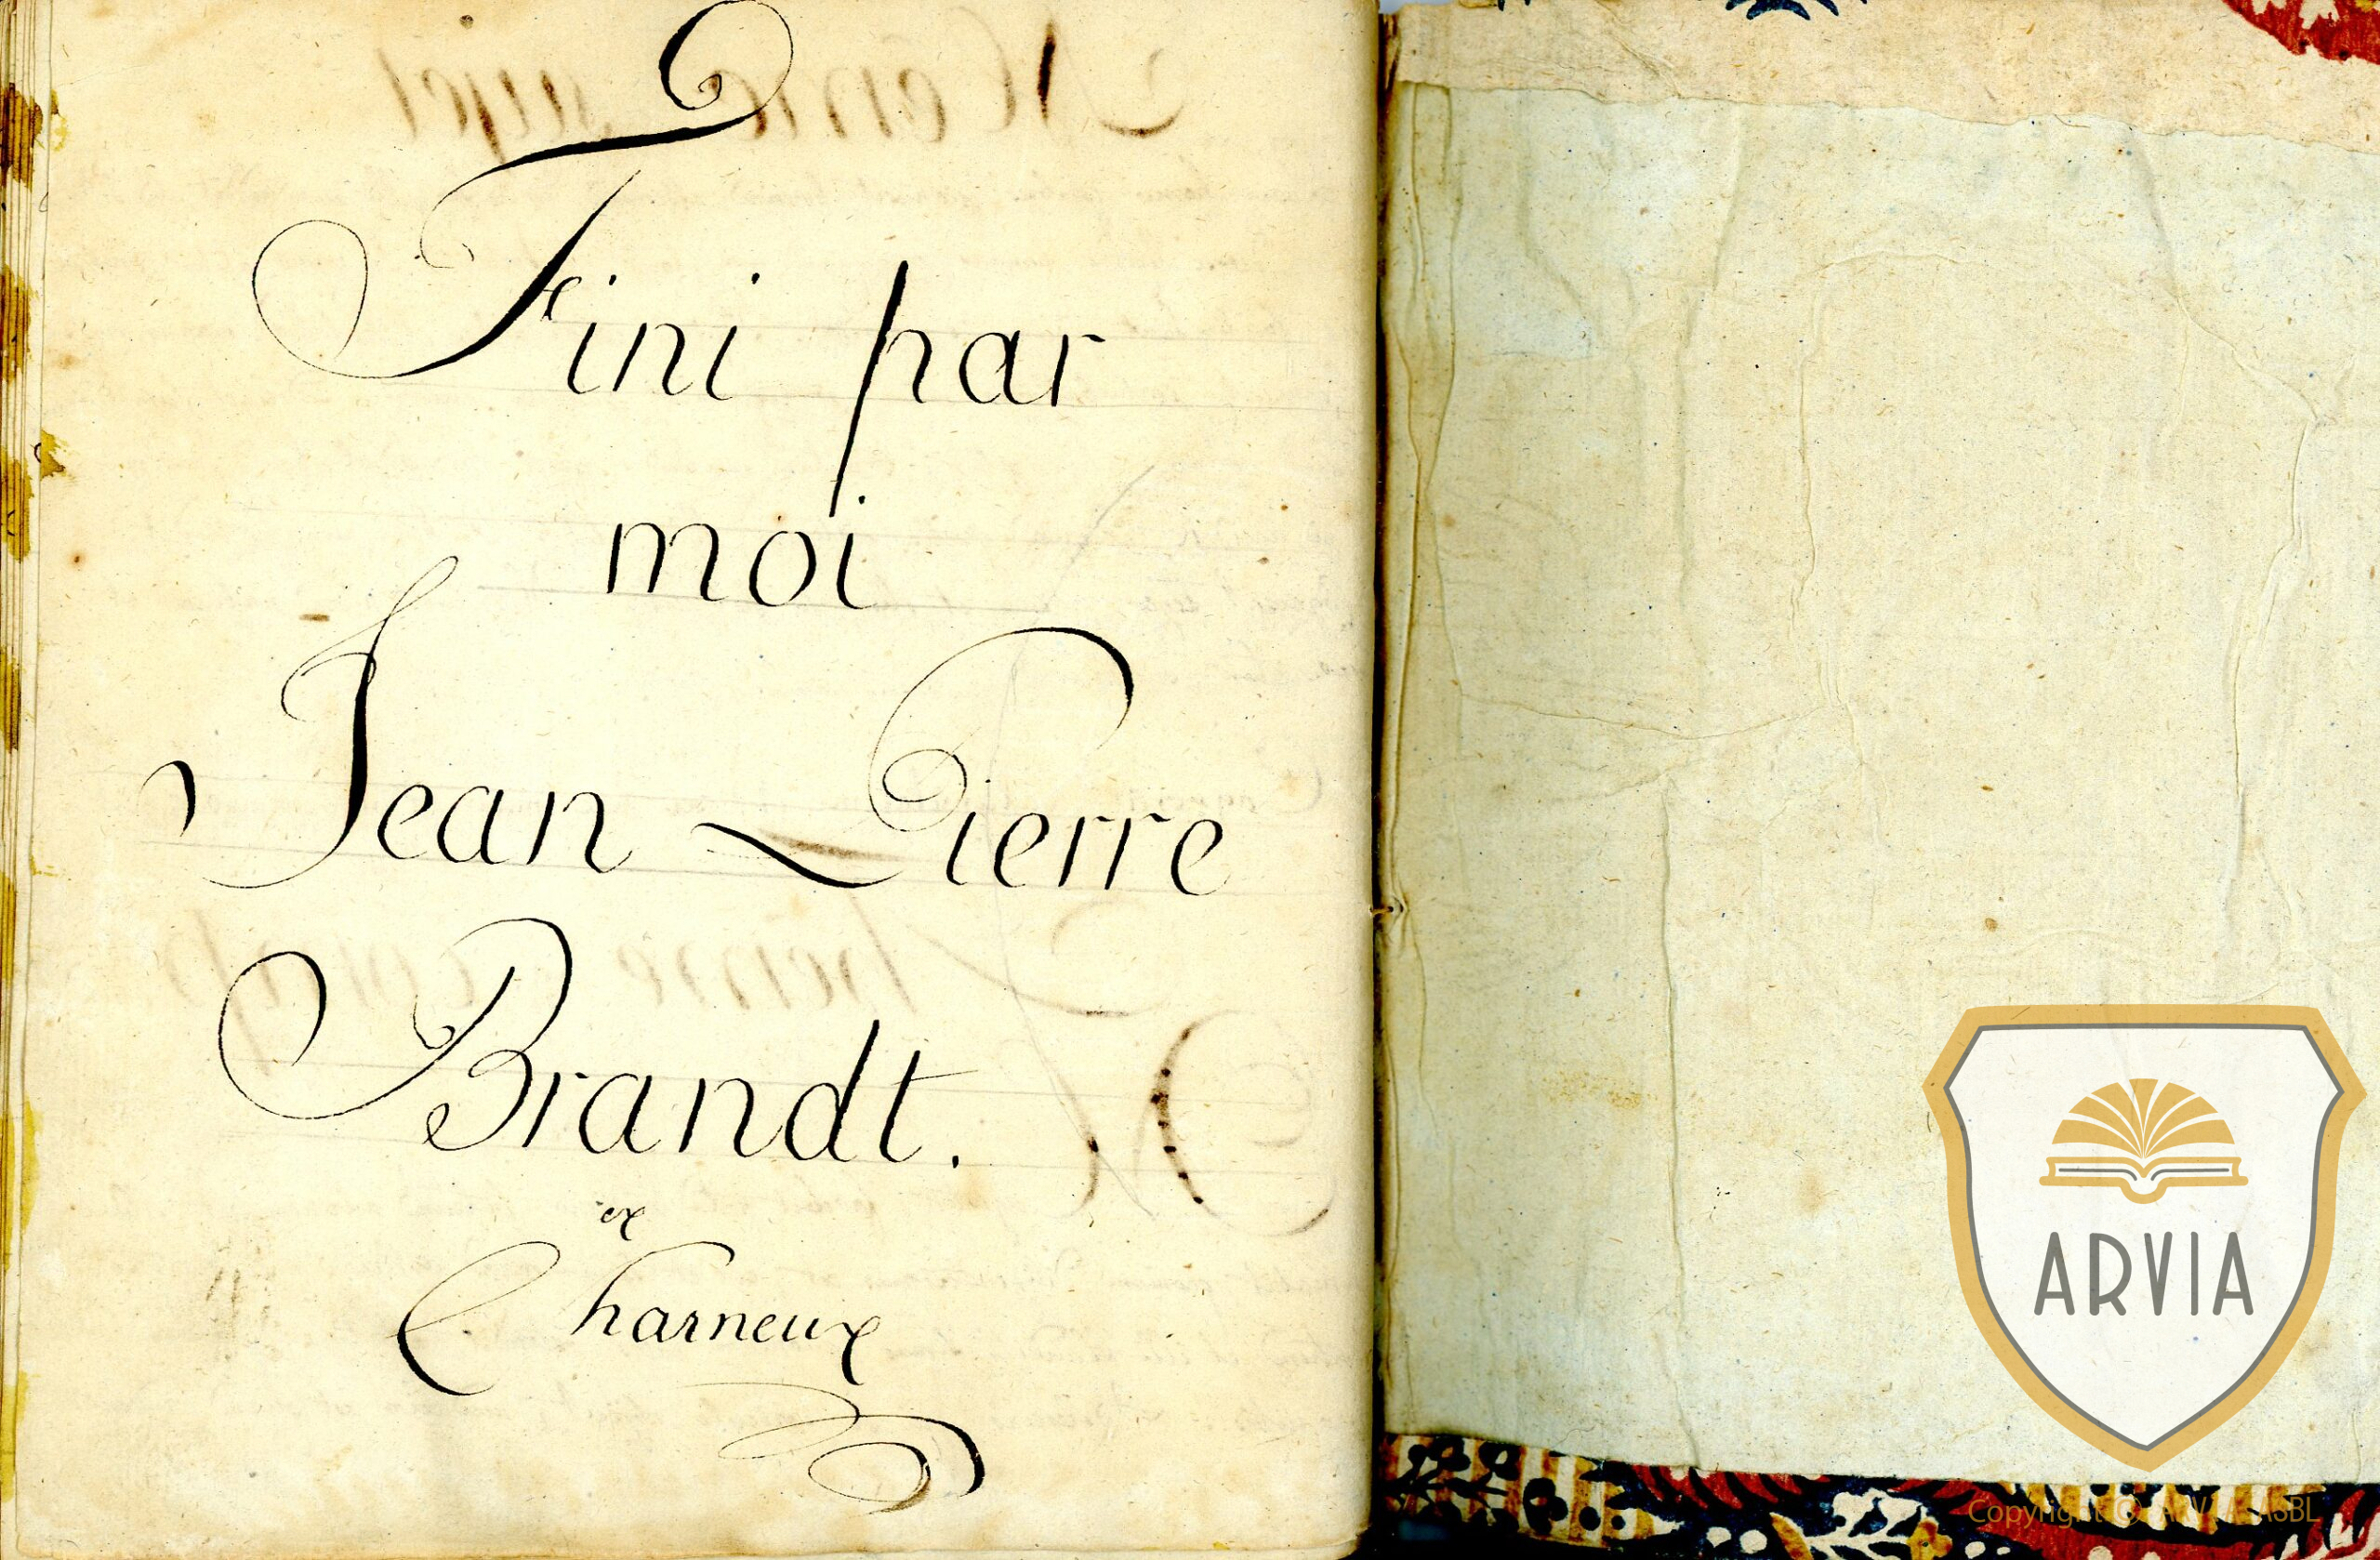 Fini par
moi
Jean Pierre
Brandt.
ex
Charneux
ARVIA
Copyright © ARVIA ASBL